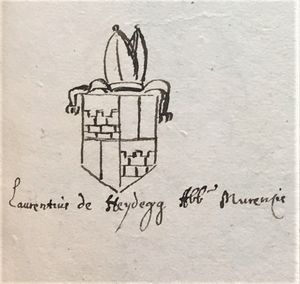 Laurentius de Heydegg Abb.ᵘˢ Murensis